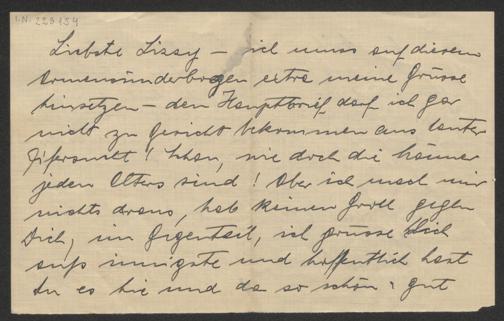 I.N. 229154
Liebste Lizzy – ich muss auf diesem
Armensünderbogen extra meine Grüsse
hinsetzen – den Hauptbrief darf ich gar
nicht zu Gesicht bekommen aus lauter
Eifersucht! schau, wie doch die Männer
jeden Alters sind! Aber ich mach mir
nichts draus, hab keinen Groll gegen
Dich, im Gegenteil, ich grüsse Dich
aufs innigste und hoffentlich hast
du es hie und da so schön & gut